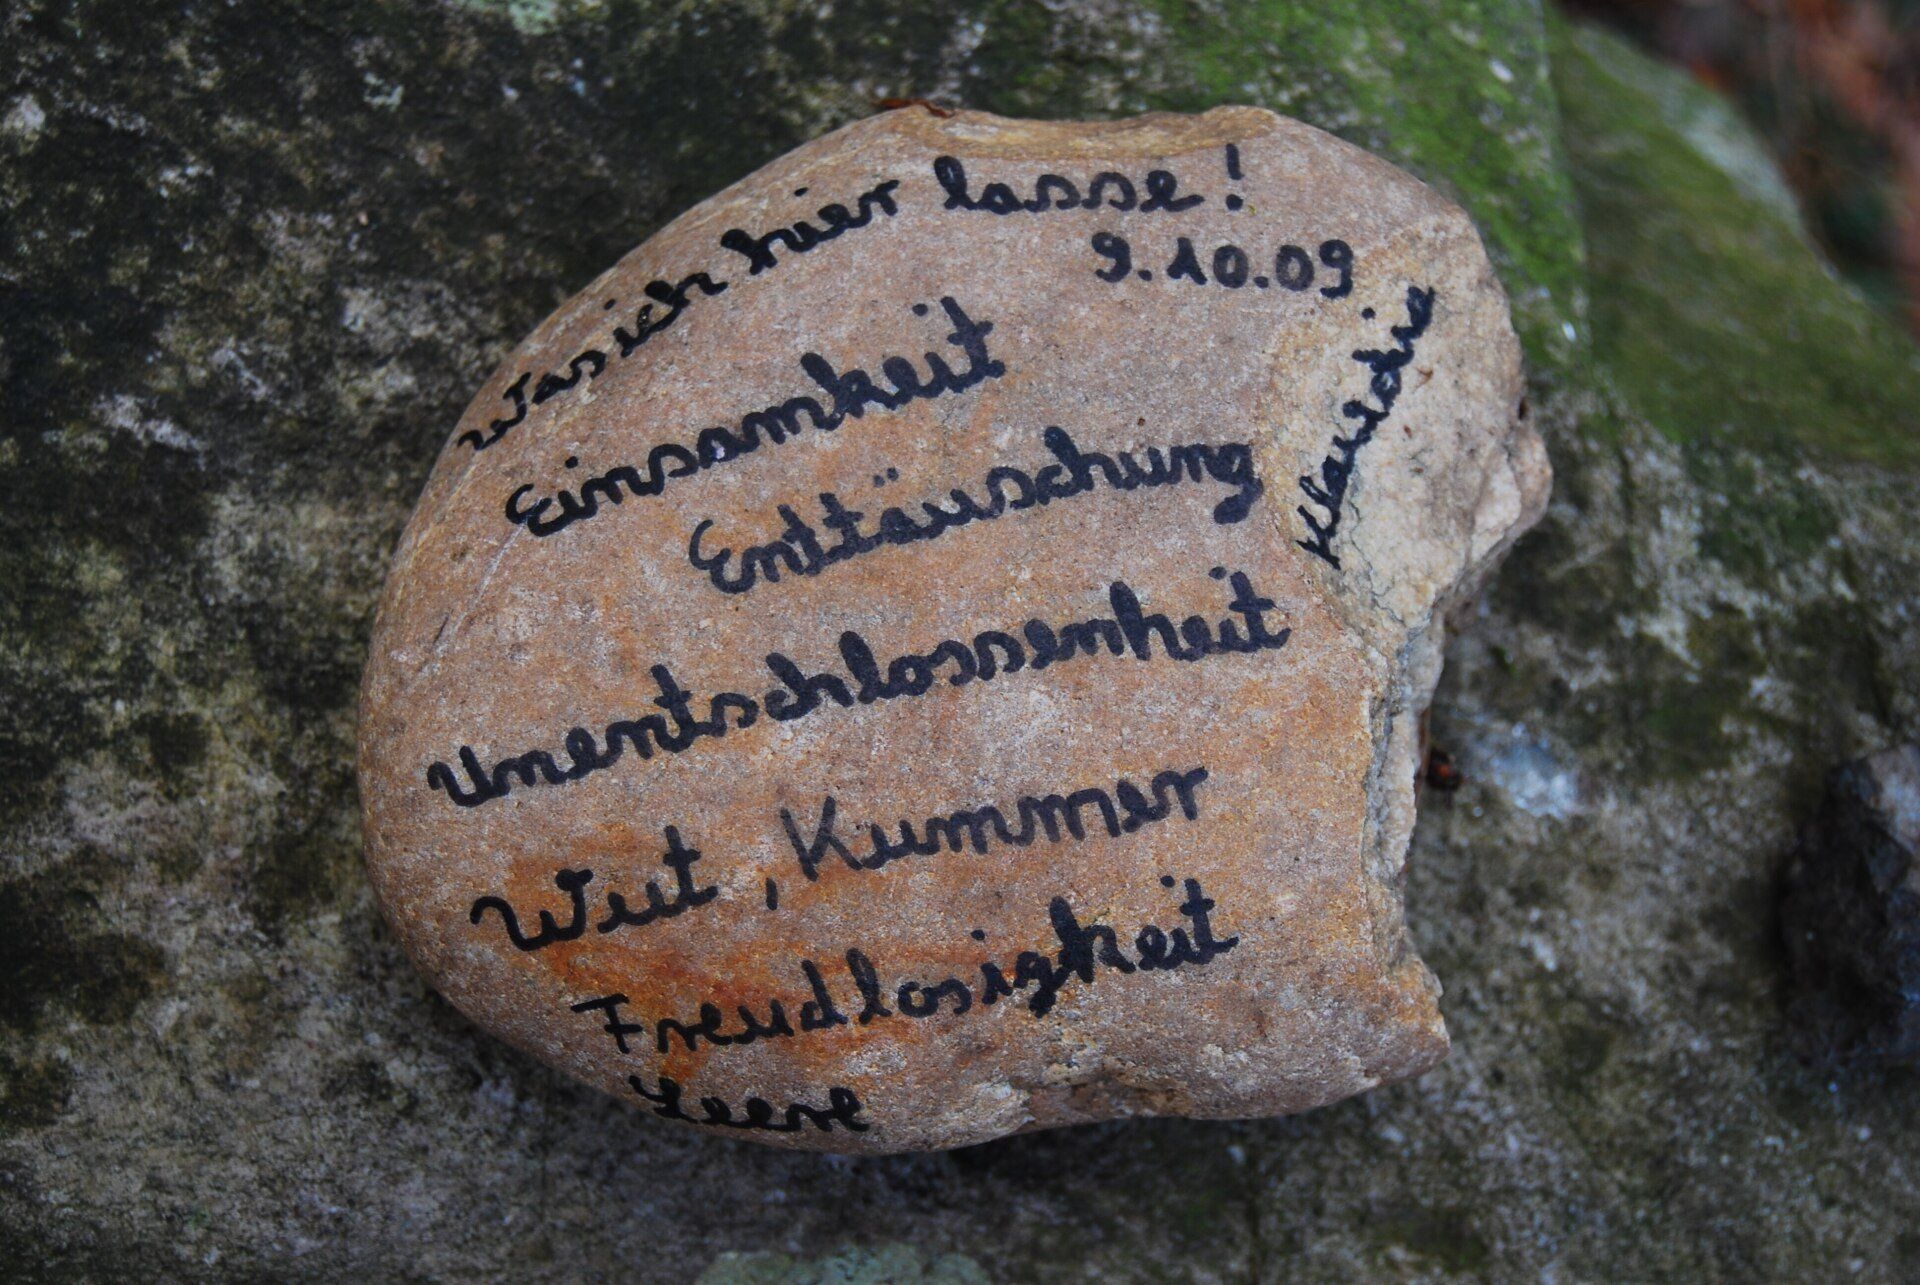 Was ich hier lasse!
9.10.09
Klaudie
Einsamkeit
Enttäuschung
Unentschlossenheit
Wut, Kummer
Freudlosigkeit
Leere